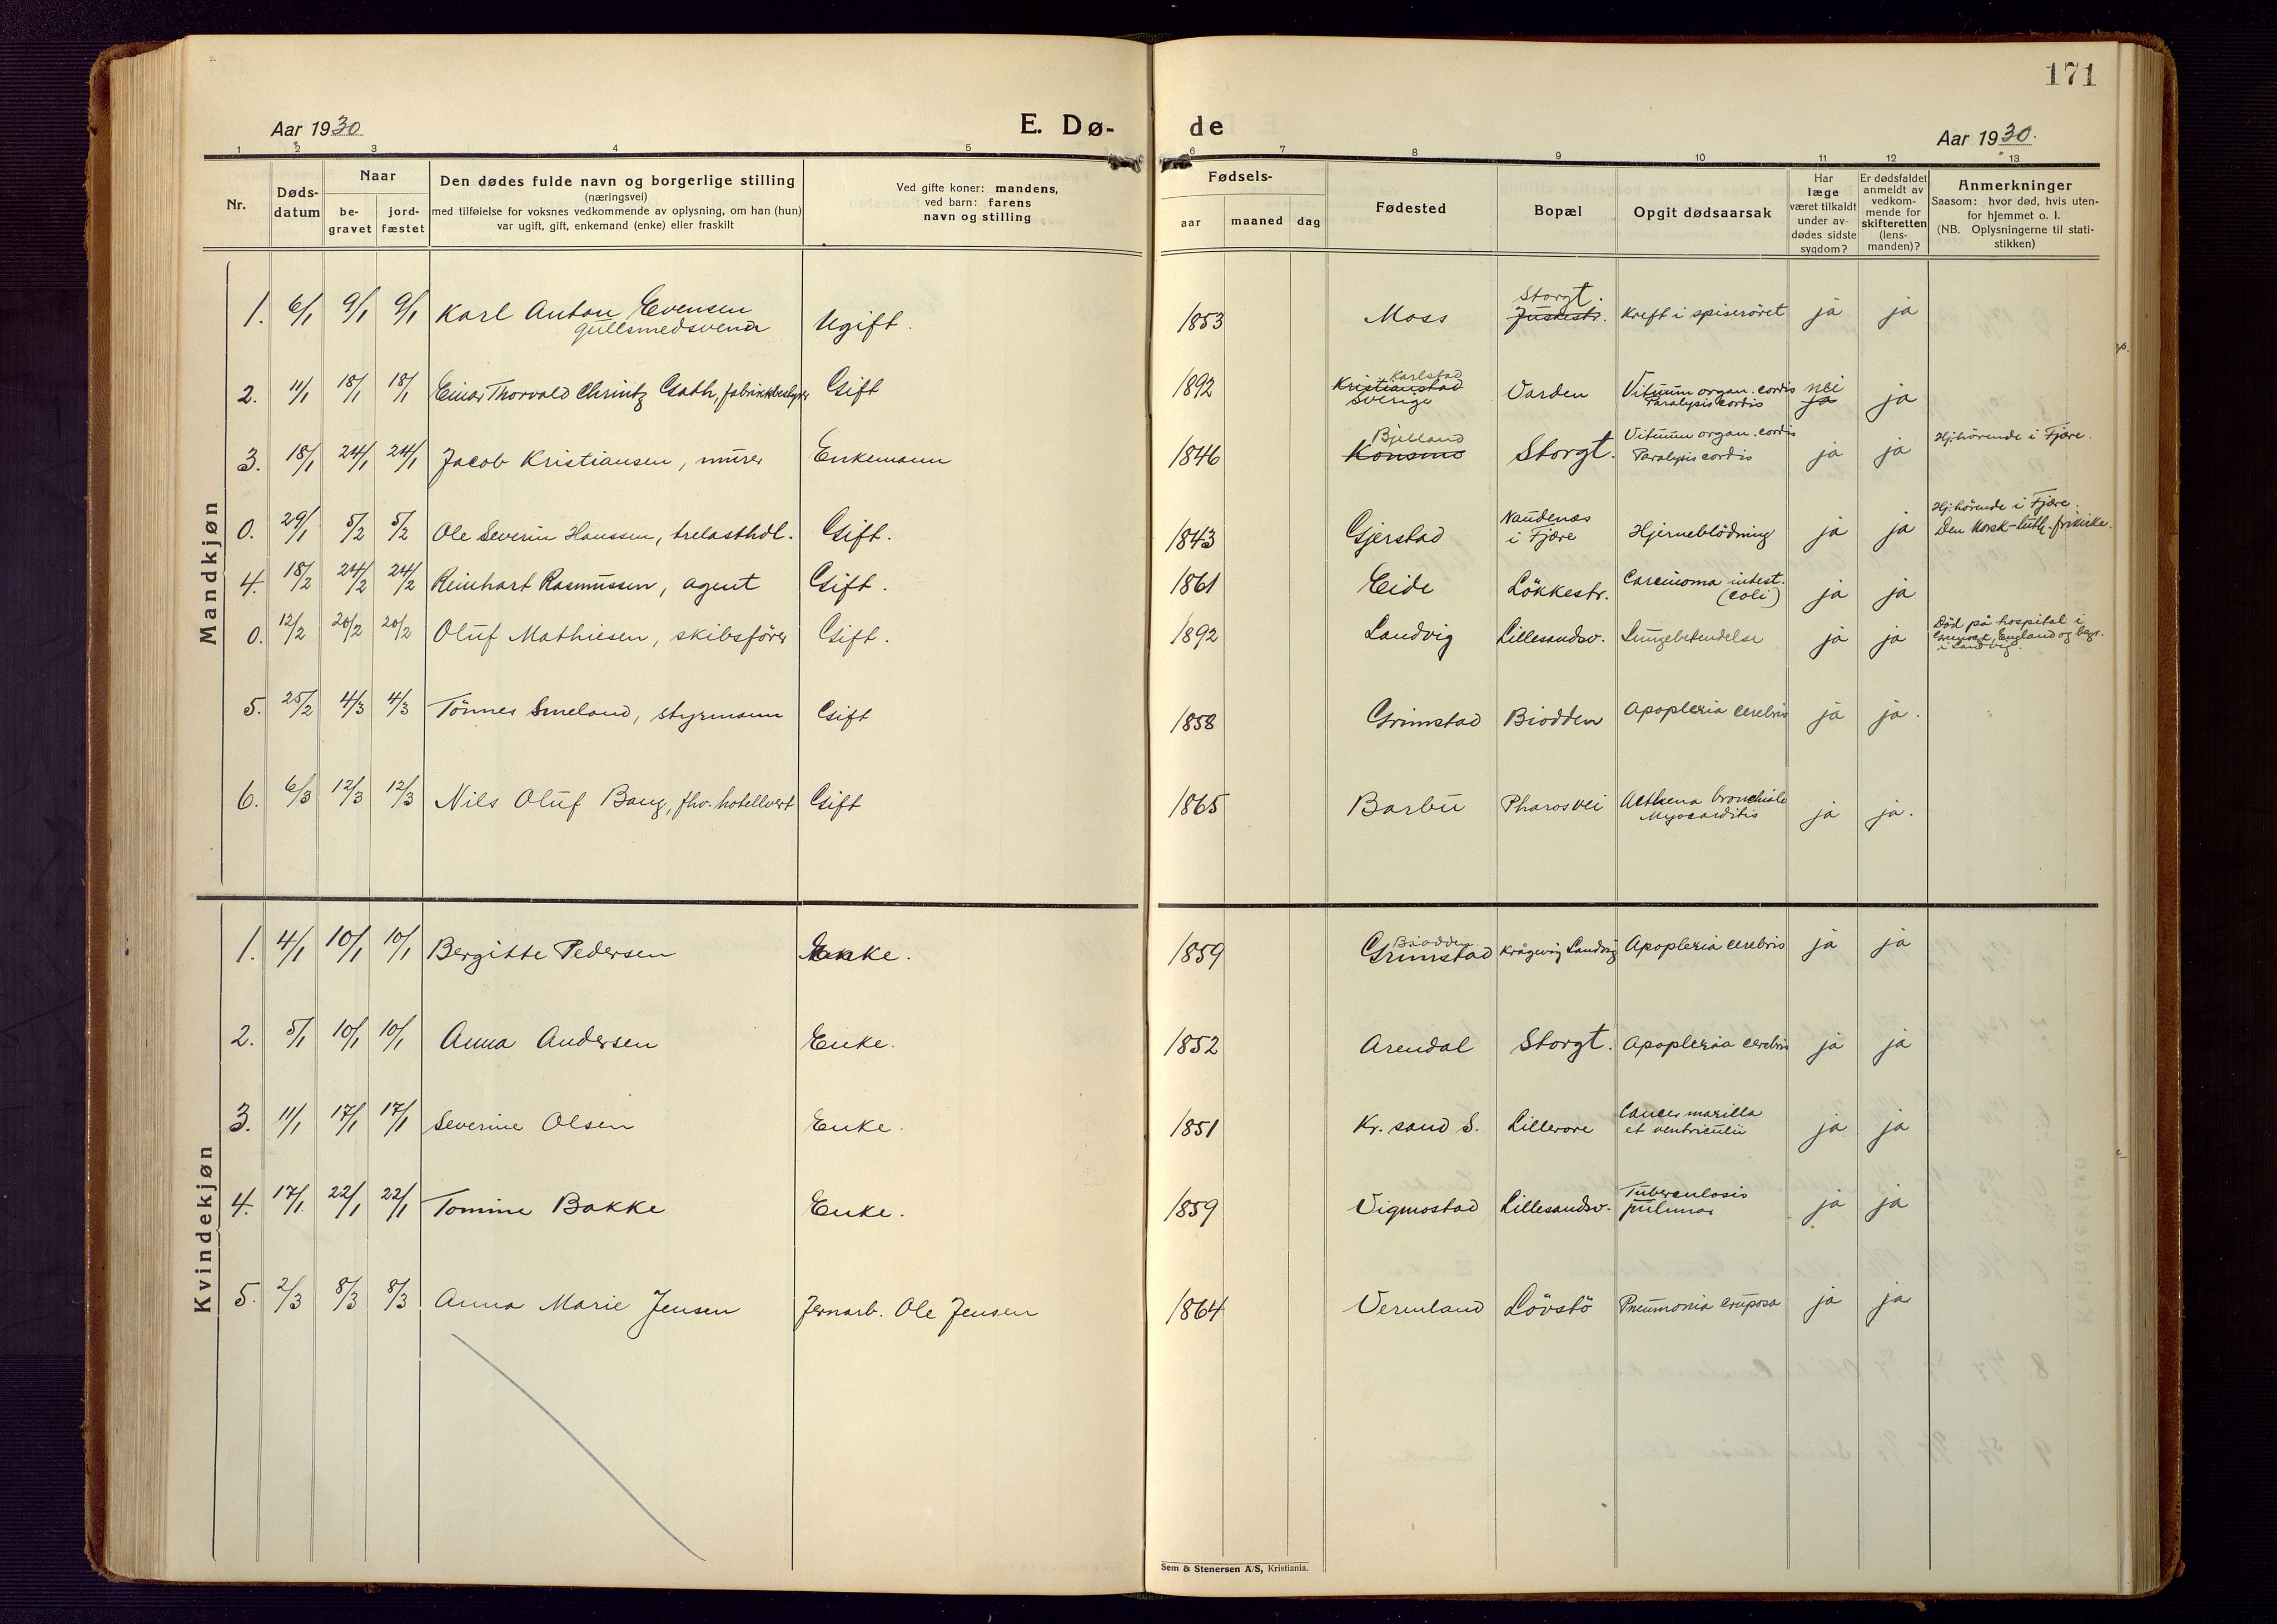 171
Aar 1930
E. Dø-
de
Aar 1930.
1 2 3 4 5 6 7 8 9 10 11 12 13
Nr.
Døds-
datum
Naar
be-
gravet
jord-
fæstet
Den dødes fulde navn og borgerlige stilling
(næringsvei)
med tilføielse for voksnes vedkommende av oplysning, om han (hun)
var ugift, gift, enkemand (enke) eller fraskilt
Ved gifte koner: mandens,
ved barn: farens
navn og stilling
Fødsels-
aar maaned dag
Fødested
Bopæl
Opgit dødsaarsak
Har
læge
været tilkaldt
under av-
dødes sidste
sygdom?
Er dødsfaldet
anmeldt av
vedkom-
mende for
skifteretten
(lens-
manden)?
Anmerkninger
Saasom: hvor død, hvis uten-
for hjemmet o. l.
(NB. Oplysningerne til stati-
stikken)
Mandkjøn
Storgt.
1. 6/1 9/1 9/1 Karl Anton Evensen Ugift. 1853 Moss Kreft i spiserøret ja ja
gullsmedsvend
Karlstad
2. 11/1 18/1 18/1 Einar Thorvald Chrintz Gath, fabrikkbestyrer Gift 1892 Kristianstad Varden Vitium organ. cordis nei ja
Sverige Paralysis cordis ja
Bjelland Vitium organ. cordis Hjhörende i Fjære.
3. 18/1 24/1 24/1 Jacob Kristiansen, murer Enkemann 1846 Konsmo Storgt. Paralysis cordis ja ja
Naudenes Hjhörende i Fjære.
0. 29/1 5/2 5/2 Ole Severin Hanssen, trelasthdl. Gift. 1843 Gjerstad i Fjære Hjerneblödning ja ja Den norsk-luth. frikirke.
4. 18/2 24/2 24/2 Reinhart Rasmussen, agent Gift. 1861 Eide Lökkestr. Carcinoma intest. ja ja
(coli)
0. 12/2 20/2 20/2 Oluf Mathiesen, skibsförer Gift. 1892 Landvig Lillesandsv. Lungebetendelse ja ja Död på hospital i
England og begr.
i Landvig.
5. 25/2 4/3 4/3 Tönnes Smeland, styrmann Gift 1858 Grimstad Biodden Apoplexia cerebris ja ja.
6. 6/3 12/3 12/3 Nils Oluf Bang, fhv. hotellvert Gift 1865 Barbu Pharosvei Asthma bronchiale ja ja.
Myocarditis
Kvindekjøn
Biodden
1. 4/1 10/1 10/1 Bergitte Pedersen Enke. 1859 Grimstad Krågevig Landvig Apoplexia cerebris ja ja
2. 5/1 10/1 10/1 Anna Andersen Enke. 1852 Arendal Storgt. Apoplexia cerebris ja ja
3. 11/1 17/1 17/1 Severine Olsen Enke. 1851 Kr. sand S. Lillerore Cancer maxilla ja ja
et ventriculii
4. 17/1 22/1 22/1 Tomine Bakke Enke. 1859 Vigmostad Lillesandsv. Tuberculosis ja ja
pulmas
5. 2/3 8/3 8/3 Anna Marie Jensen Jernarb. Ole Jensen 1864 Vermland Lövstö Pneumonia cruposa ja ja
Sem & Stenersen A/S, Kristiania.